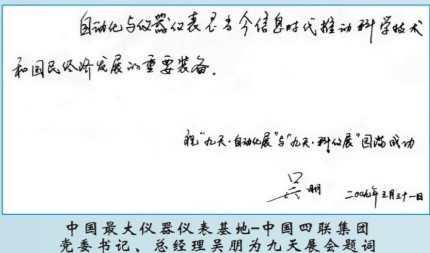 自动化与仪器仪表是当今信息时代推动科学技术
和国民经济发展的重要装备。
祝“九天·自动化展”与“九天·科仪展”圆满成功
吴朋 二〇〇九年三月三十一日
中国最大仪器仪表基地-中国四联集团
党委书记、总经理吴朋为九天展会题词